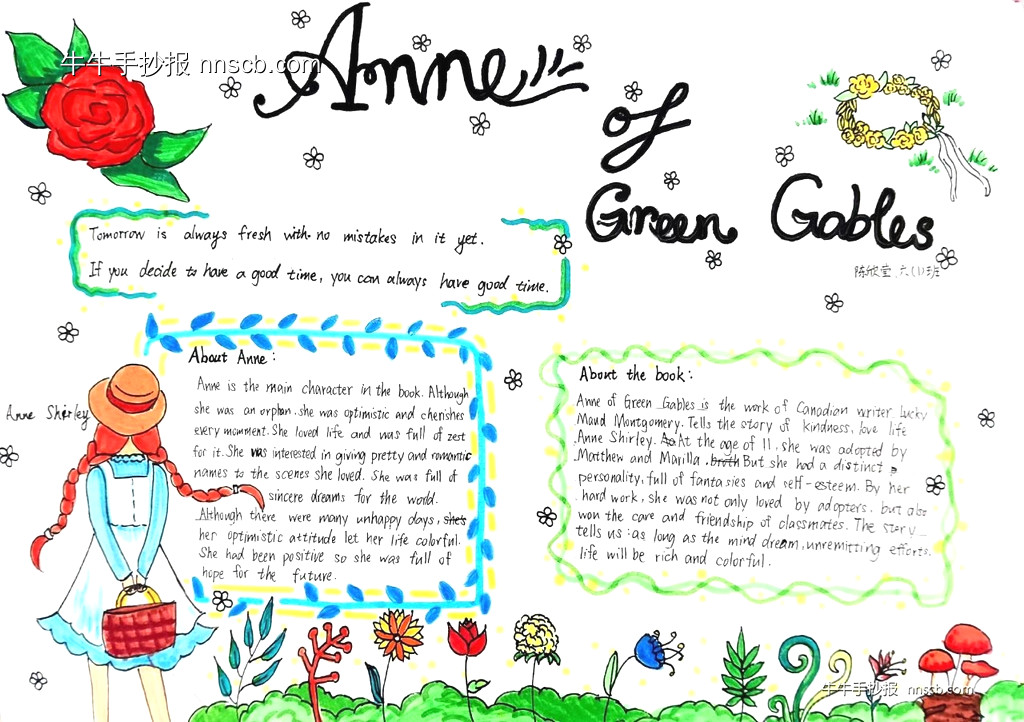 牛牛手抄报 nnscb.com
Anne
of
Green Gables
陈欣莹 六(1)班
Tomorrow is always fresh with no mistakes in it yet.
If you decide to have a good time, you can always have good time.
Anne Shirley
About Anne:
Anne is the main character in the book. Although
she was an orplan. she was optimistic and cherishes
every momment. She loved life and was full of zest
for it. She was interested in giving pretty and romantic
names to the scenes she loved. She was full of
sincere dreams for the world.
Although there were many unhappy days, she's
her optimistic attitude let her life colorful.
She had been positive so she was full of
hope for the future.
About the book:
Anne of Green Gables is the work of Canadian writer Lucky
Maud Montgomery. Tells the story of kindness, love life
Anne Shirley. At the age of 11, she was adopted by
Matthew and Marilla. broth But she had a distinct
personality, full of fantasies and self-esteem. By her
hard work, she was not only loved by adopters, but also
won the care and friendship of classmates. The story
tells us: as long as the mind dream, unremitting efforts,
life will be rich and colorful.
牛牛手抄报 nnscb.com